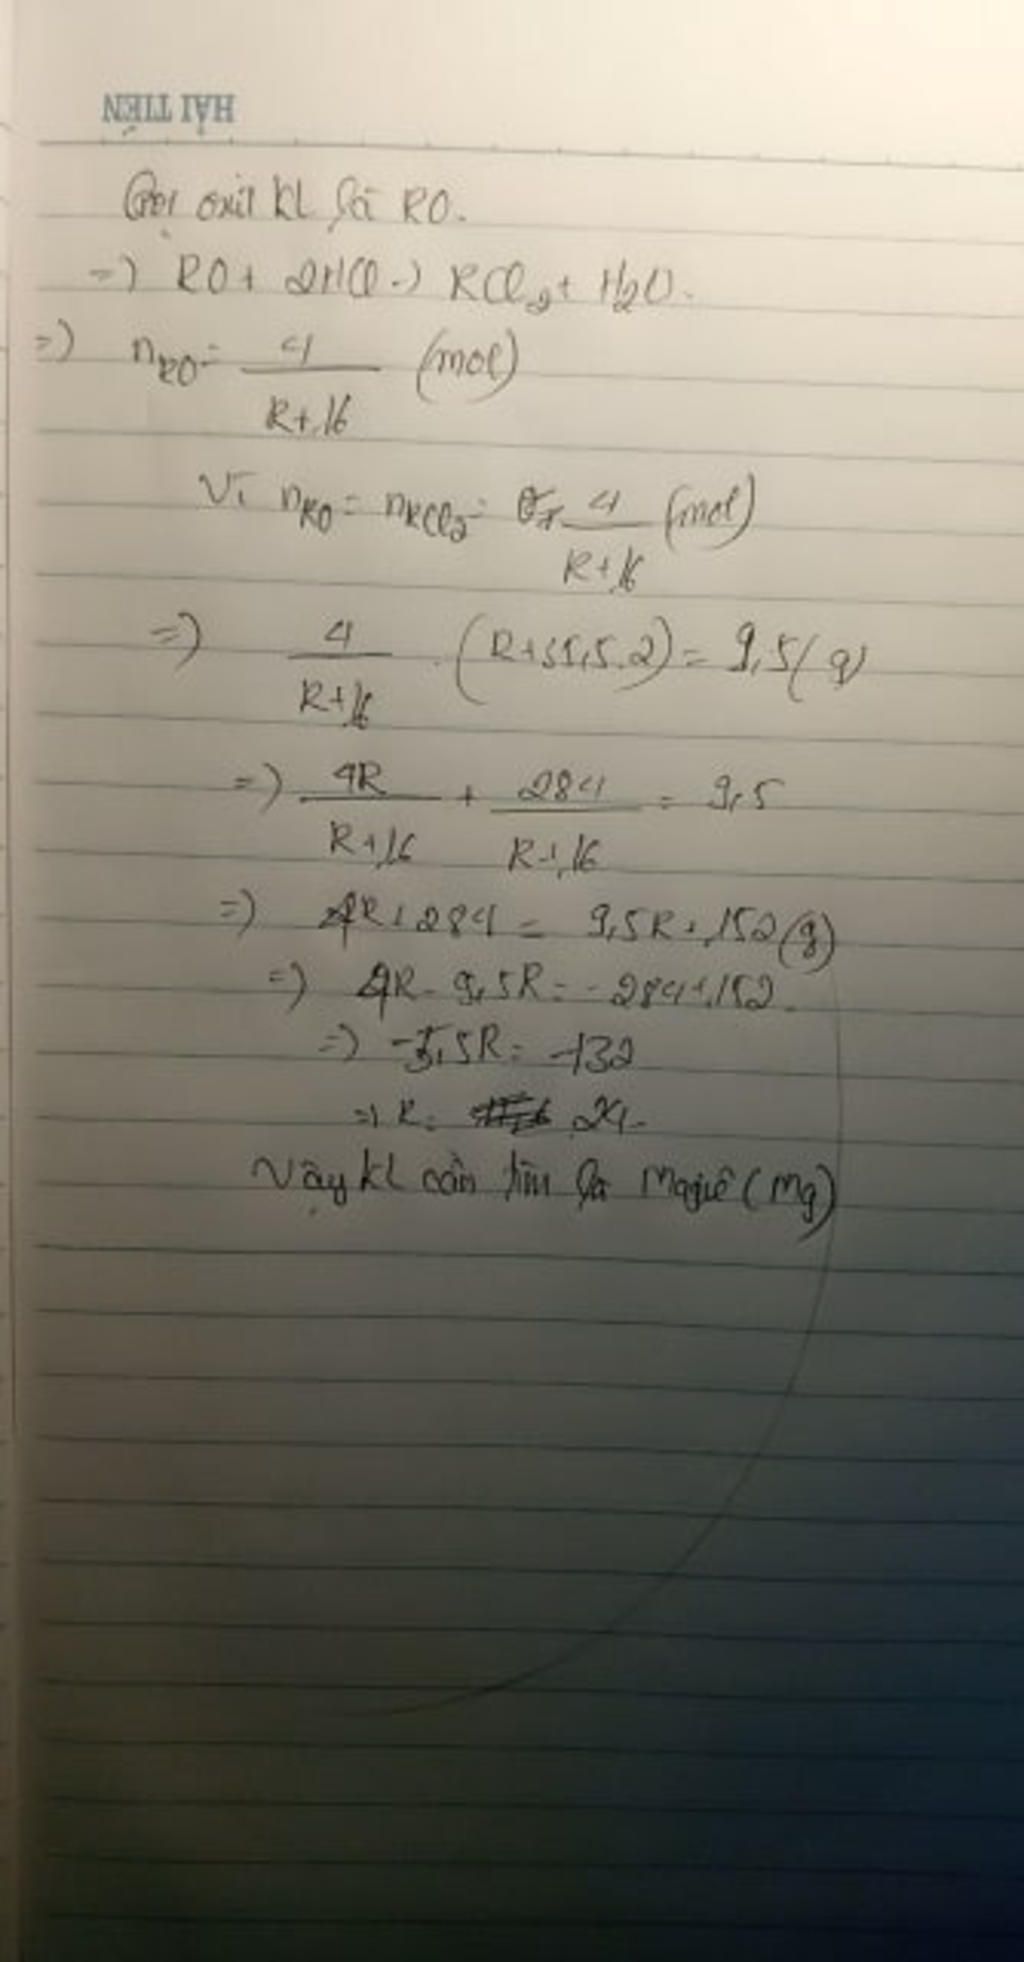 HẢI TIẾN
Gọi oxit KL là RO.
=> RO + 2HCl -> RCl2 + H2O.
=> nRO = 4 / R+16 (mol)
Vì nRO = nRCl2 = 4 / R+16 (mol)
=> 4 / R+16 . (R+35,5.2) = 9,5 (g)
=> 4R / R+16 + 284 / R+16 = 9,5
=> 4R + 284 = 9,5R + 152 (g)
=> 4R - 9,5R = -284 + 152.
=> -5,5R = -132
=> R = 24.
Vậy KL cần tìm là Magiê (Mg)